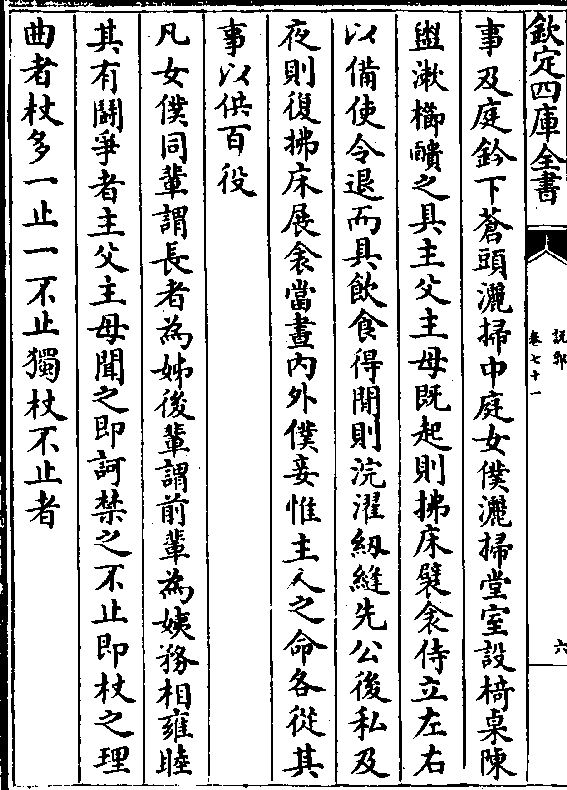 欽定四庫全書
說郛
卷七十一
六
事及庭鈐下蒼頭灑掃中庭女僕灑掃堂室設椅桌陳
盥漱櫛靧之具主父主母既起則拂床襞衾侍立左右
以備使令退而具飲食得閒則浣濯紉縫先公後私及
夜則復拂床展衾當晝内外僕妾惟主人之命各從其
事以供百役
凡女僕同輩謂長者為姊後輩謂前輩為姨務相雍睦
其有鬭爭者主父主母聞之即訶禁之不止即杖之理
曲者杖多一止一不止獨杖不止者